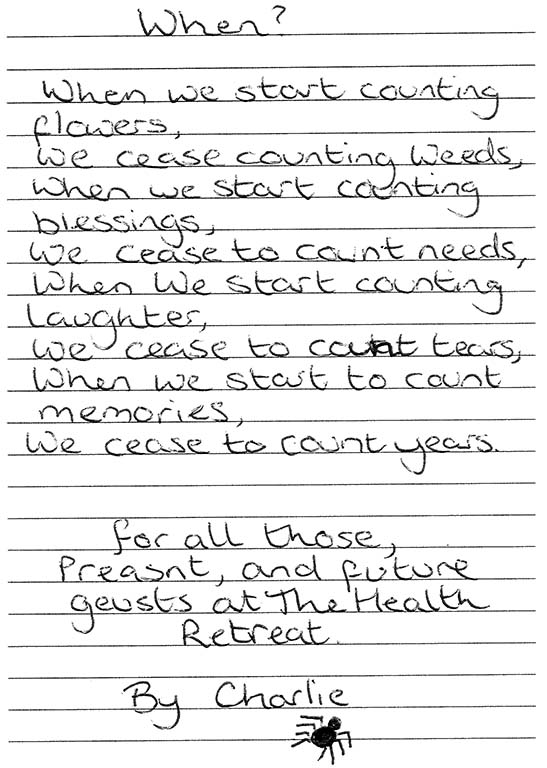 When?
When we start counting
flowers,
We cease counting Weeds,
When we start counting
blessings,
We cease to count needs,
When We start counting
Laughter,
We cease to count tears,
When we start to count
memories,
We cease to count years.
for all those,
Preasnt, and future
geusts at The Health
Retreat.
By Charlie